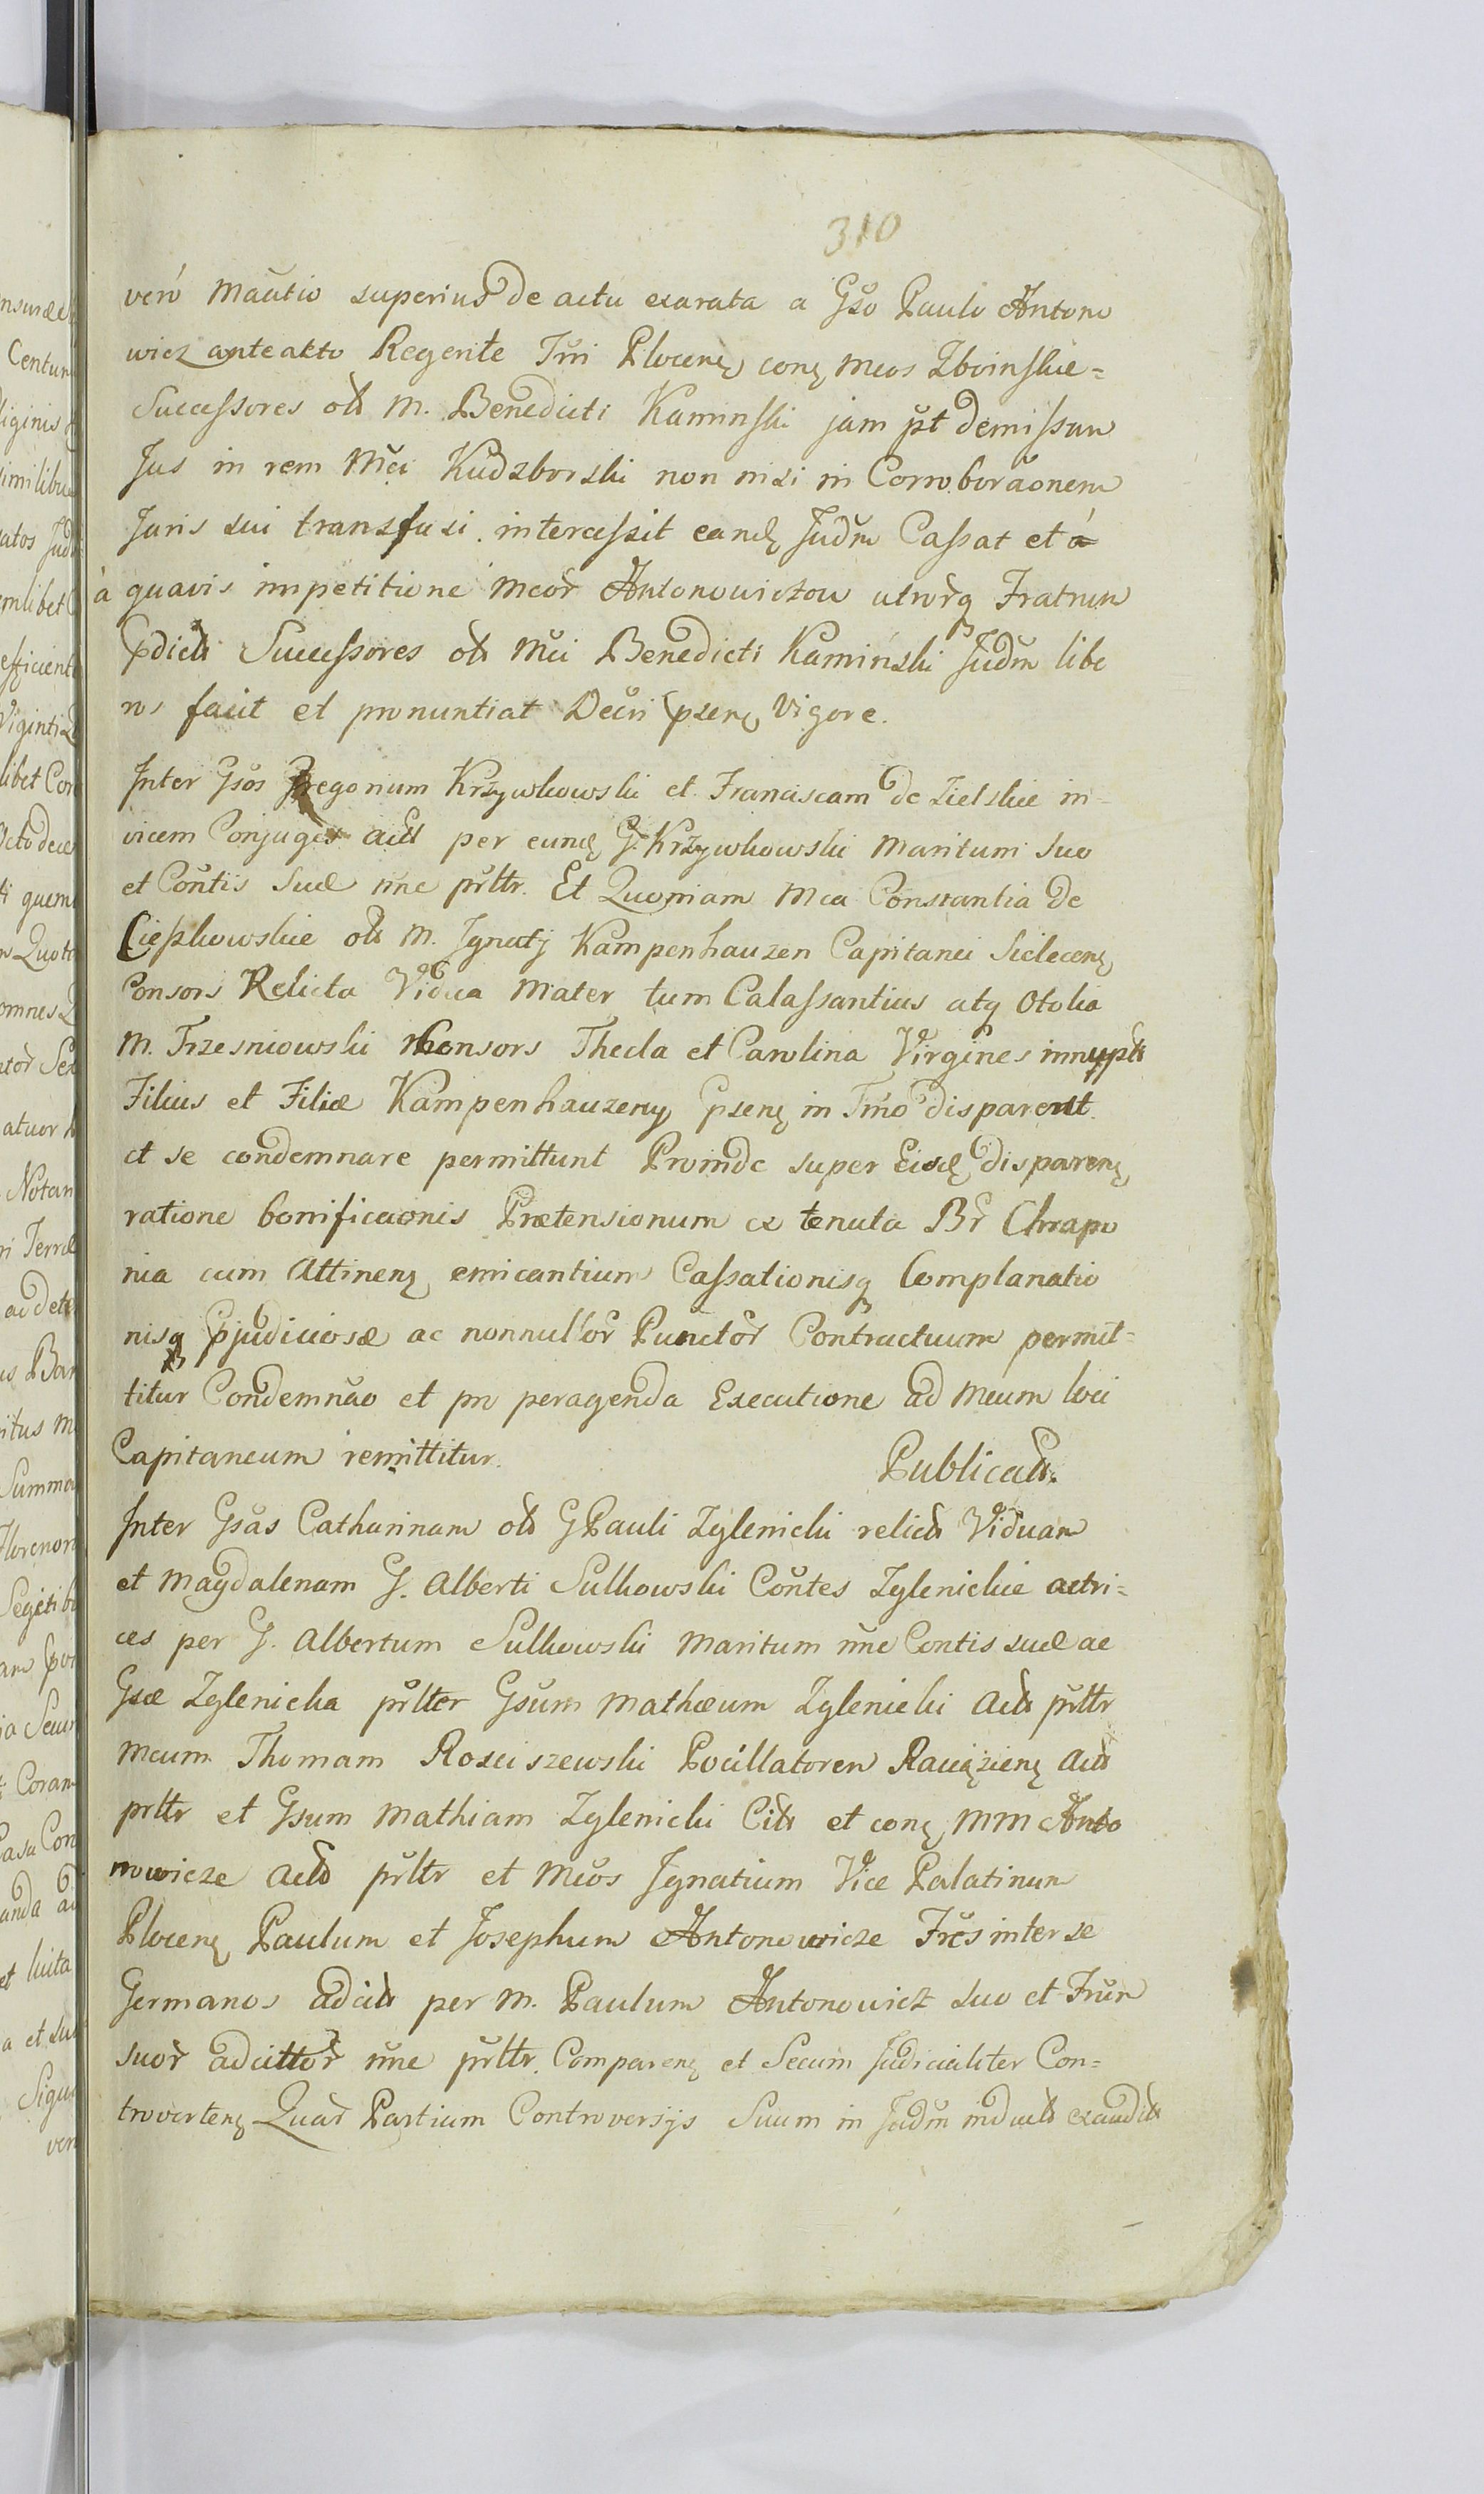 310
vero Mautio superius de actu exarata a Gso Paulo Antono
wicz anteacto Regente Trri Plocens cons Mcos Zboinskie=
Successores olt M. Benedicti Kaminski jam pst demissum
Jus in rem Mci Kudzborski non nisi in Corroboraonem
Juris sui transfusi intercessit eand Judm Cassat et
à quavis impetitione Mcor Antonowiczow utrorq Fratrum
pdict Successores olt Mci Benedicti Kamiński Judm libe
ros facit et pronuntiat Decri psens Vigore.
Inter Gsos Gregorium Krzywkowski et Franciscam de Zielskie in=
vicem Conjuges act per eund G. Krzywkowski Maritum suo
et Contis suæ nne prltr. Et Quoniam Mca Constantia de
Ciepkowskie olt M. Ignatij Kampenhauzen Capitanei Sielecens
Consors Relicta Vidua Mater tum Calassantius atq Otolia
M. Trzesniowski Consors Thecla et Carolina Virgines innupt
Filius et Filiæ Kampenhauzeny psens in Tmo disparent
et se condemnare permittunt Proinde super Eisd disparens
ratione bonificaonis Prætensionum ex tenuta Br Chrapo
nia cum Attinens emicantium Cassationisq Complanatio
nisq pjudiciosæ ac nonnullor Punctor Contractuum permit=
titur Condemnao et pro peragenda Executione ad Mcum loci
Capitaneum remittitur. Publicat.
Inter Gsas Catharinam olt G Pauli Zglenicki relict Viduam
et Magdalenam G. Alberti Sulkowski Contes Zglenickie actri=
ces per G. Albertum Sulkowski Maritum nne Contis suæ ac
Gsæ Zglenicka prlter Gsum Mathæum Zglenicki Act prltr
Mcum Thomam Rosciszewski Pocillatorem Raciążiens Act
prltr et Gsum Mathiam Zglenicki Cit et cons MM Anto
nowicze Act prltr et Mcos Ignatium Vice Palatinum
Plocens Paulum et Josephum Antonowicze Fres inter se
Germanos adcit per M. Paulum Antonowicz suo et Frum
suor adcittor nne prltr. Comparens et Secum Judicialiter Con=
trovertens Quar Partium Controversijs Suum in Judm induct exaudit